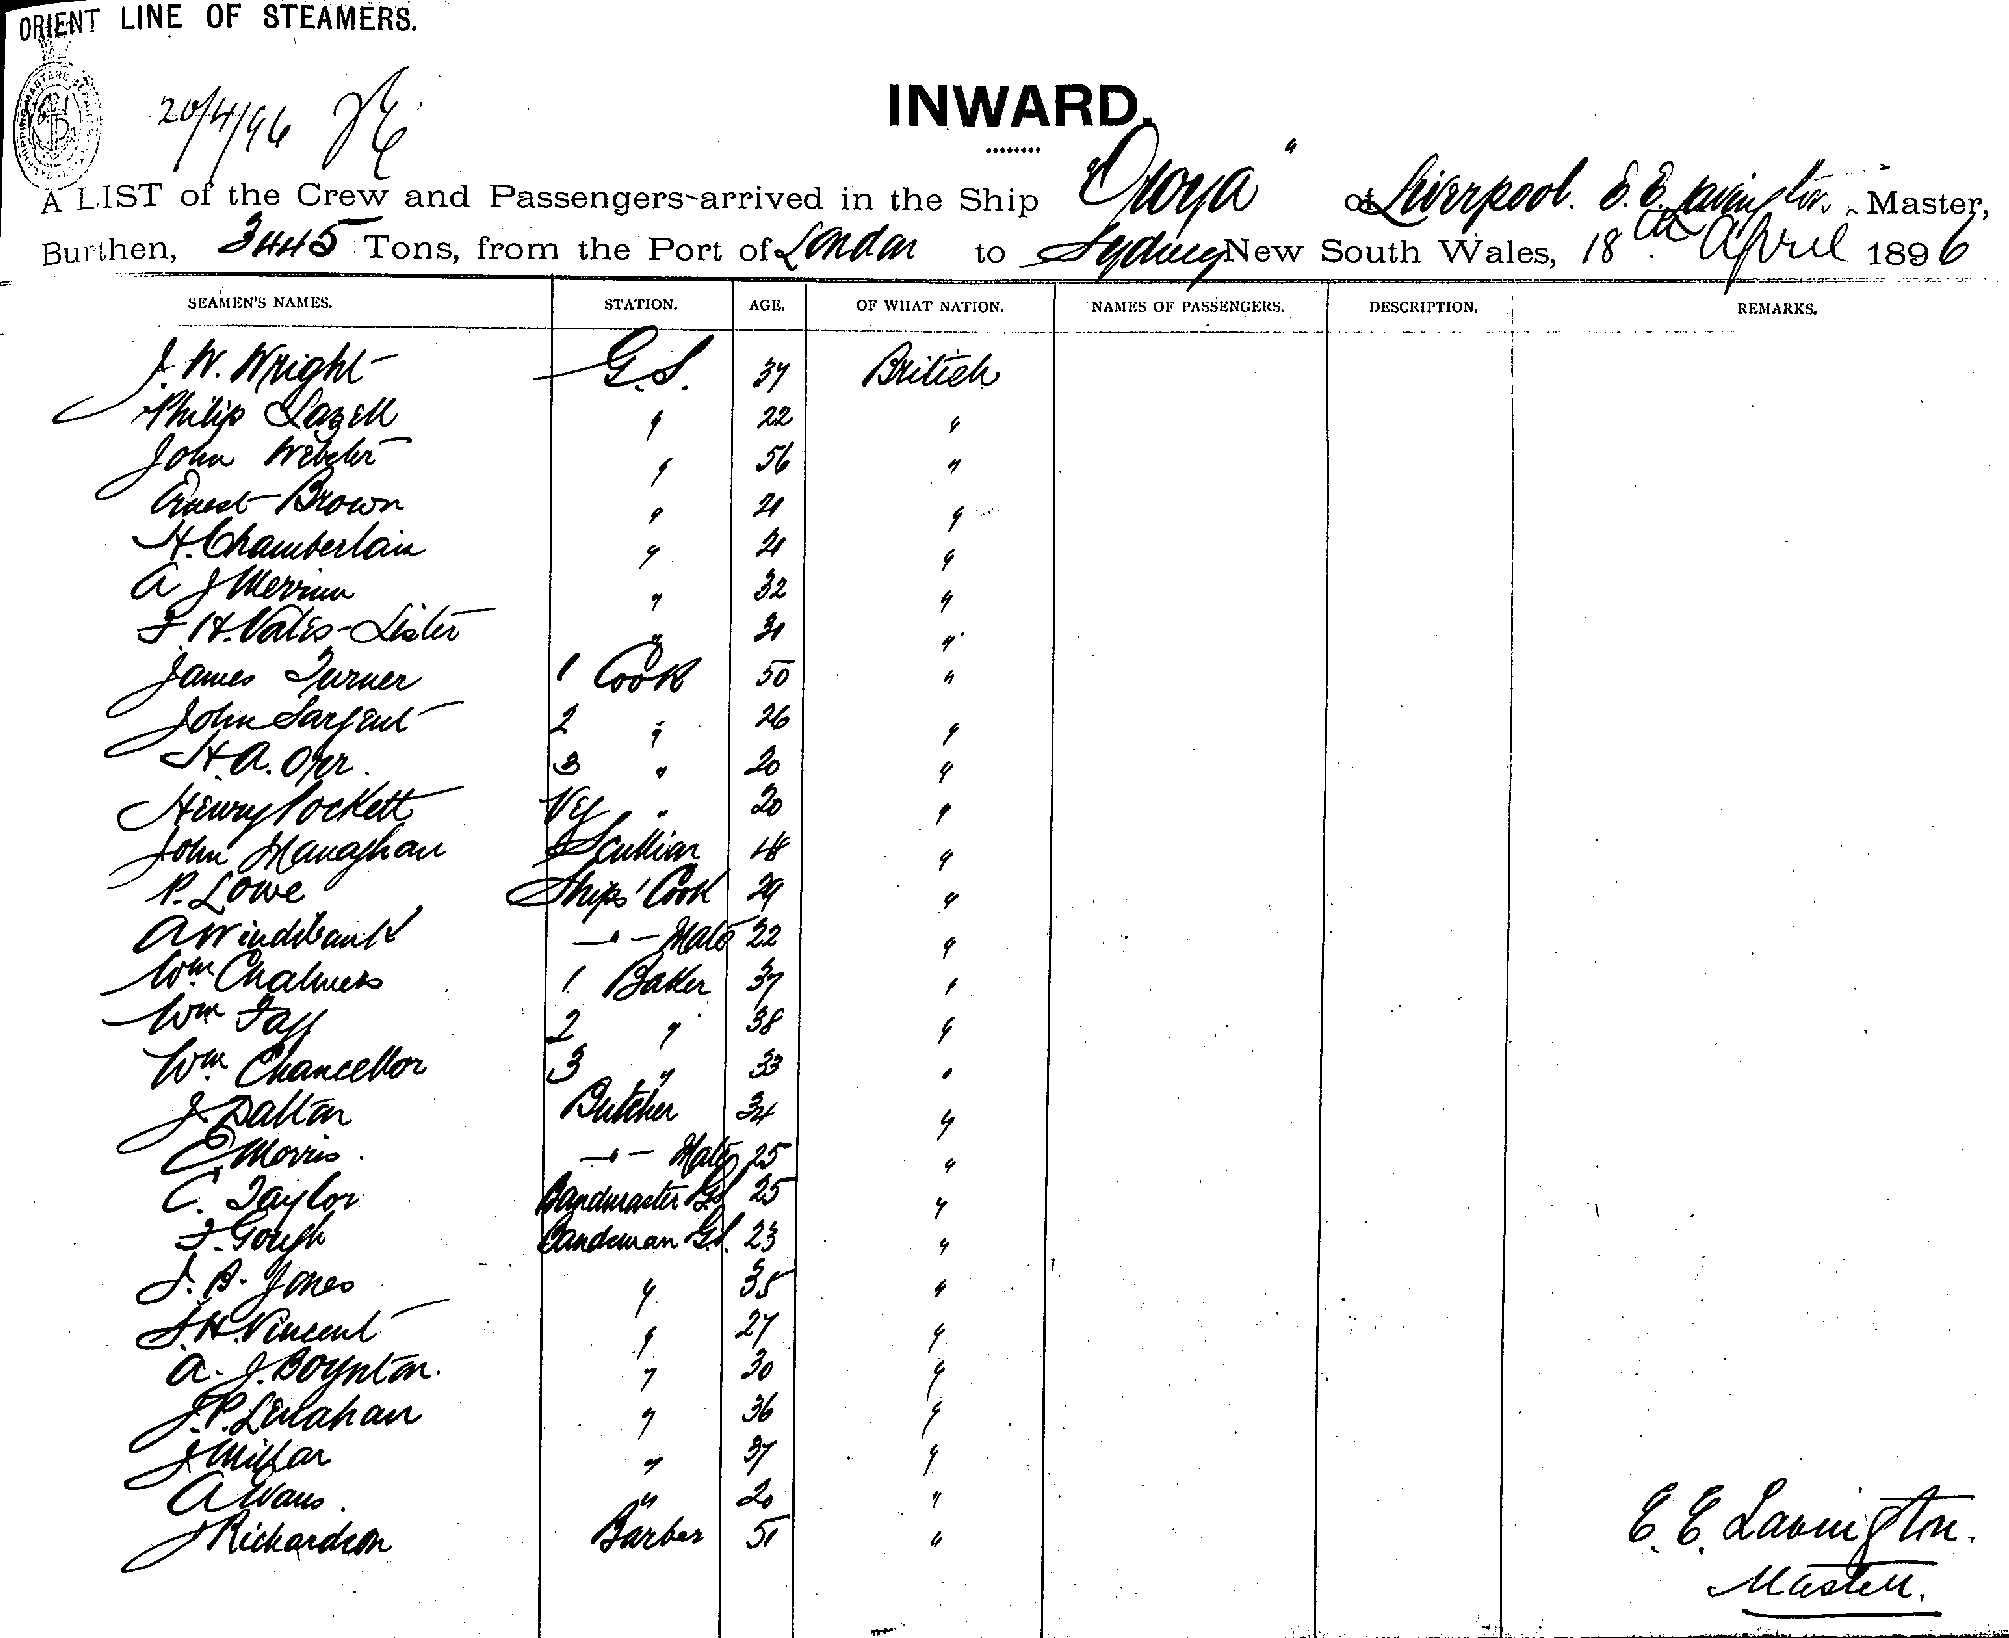 ORIENT LINE OF STEAMERS.
20/4/96
INWARD.
A LIST of the Crew and Passengers arrived in the Ship "Oroya" of Liverpool. E. E. Lavington, Master,
Burthen, 3445 Tons, from the Port of London to Sydney New South Wales, 18th April 1896
SEAMEN'S NAMES. STATION. AGE. OF WHAT NATION. NAMES OF PASSENGERS. DESCRIPTION. REMARKS.
J. W. Wright G.S. 37 British
Philip Lazell " 22 "
John Webster " 56 "
Ernest Brown " 21 "
H. Chamberlain " 21 "
A J Merrim " 32 "
F. H. Vates-Lister " 31 "
James Turner 1 Cook 50 "
John Sargent 2 " 26 "
H. A. Orr. 3 " 20 "
Henry Pockett Vey " 20 "
John Managhan Scullion 18 "
P. Lowe Ships' Cook 29 "
A Windebank —"— Mate 22 "
Wm Chalmers 1 Baker 37 "
Wm Fagg 2 " 38 "
Wm Chancellor 3 " 33 "
J. Dalton Butcher 34 "
E. Morris. —"— Mate 25 "
C. Taylor Bandmaster G.S 25 "
F. Gough Bandsman G.S. 23 "
J. A. Jones " 35 "
S. H. Vincent " 27 "
A. J. Boynton. " 30 "
J. P. Lenahan " 36 "
J Millar " 37 "
A Wans. " 20 "
J Richardson Barber 51 "
E. E. Lavington.
Master.